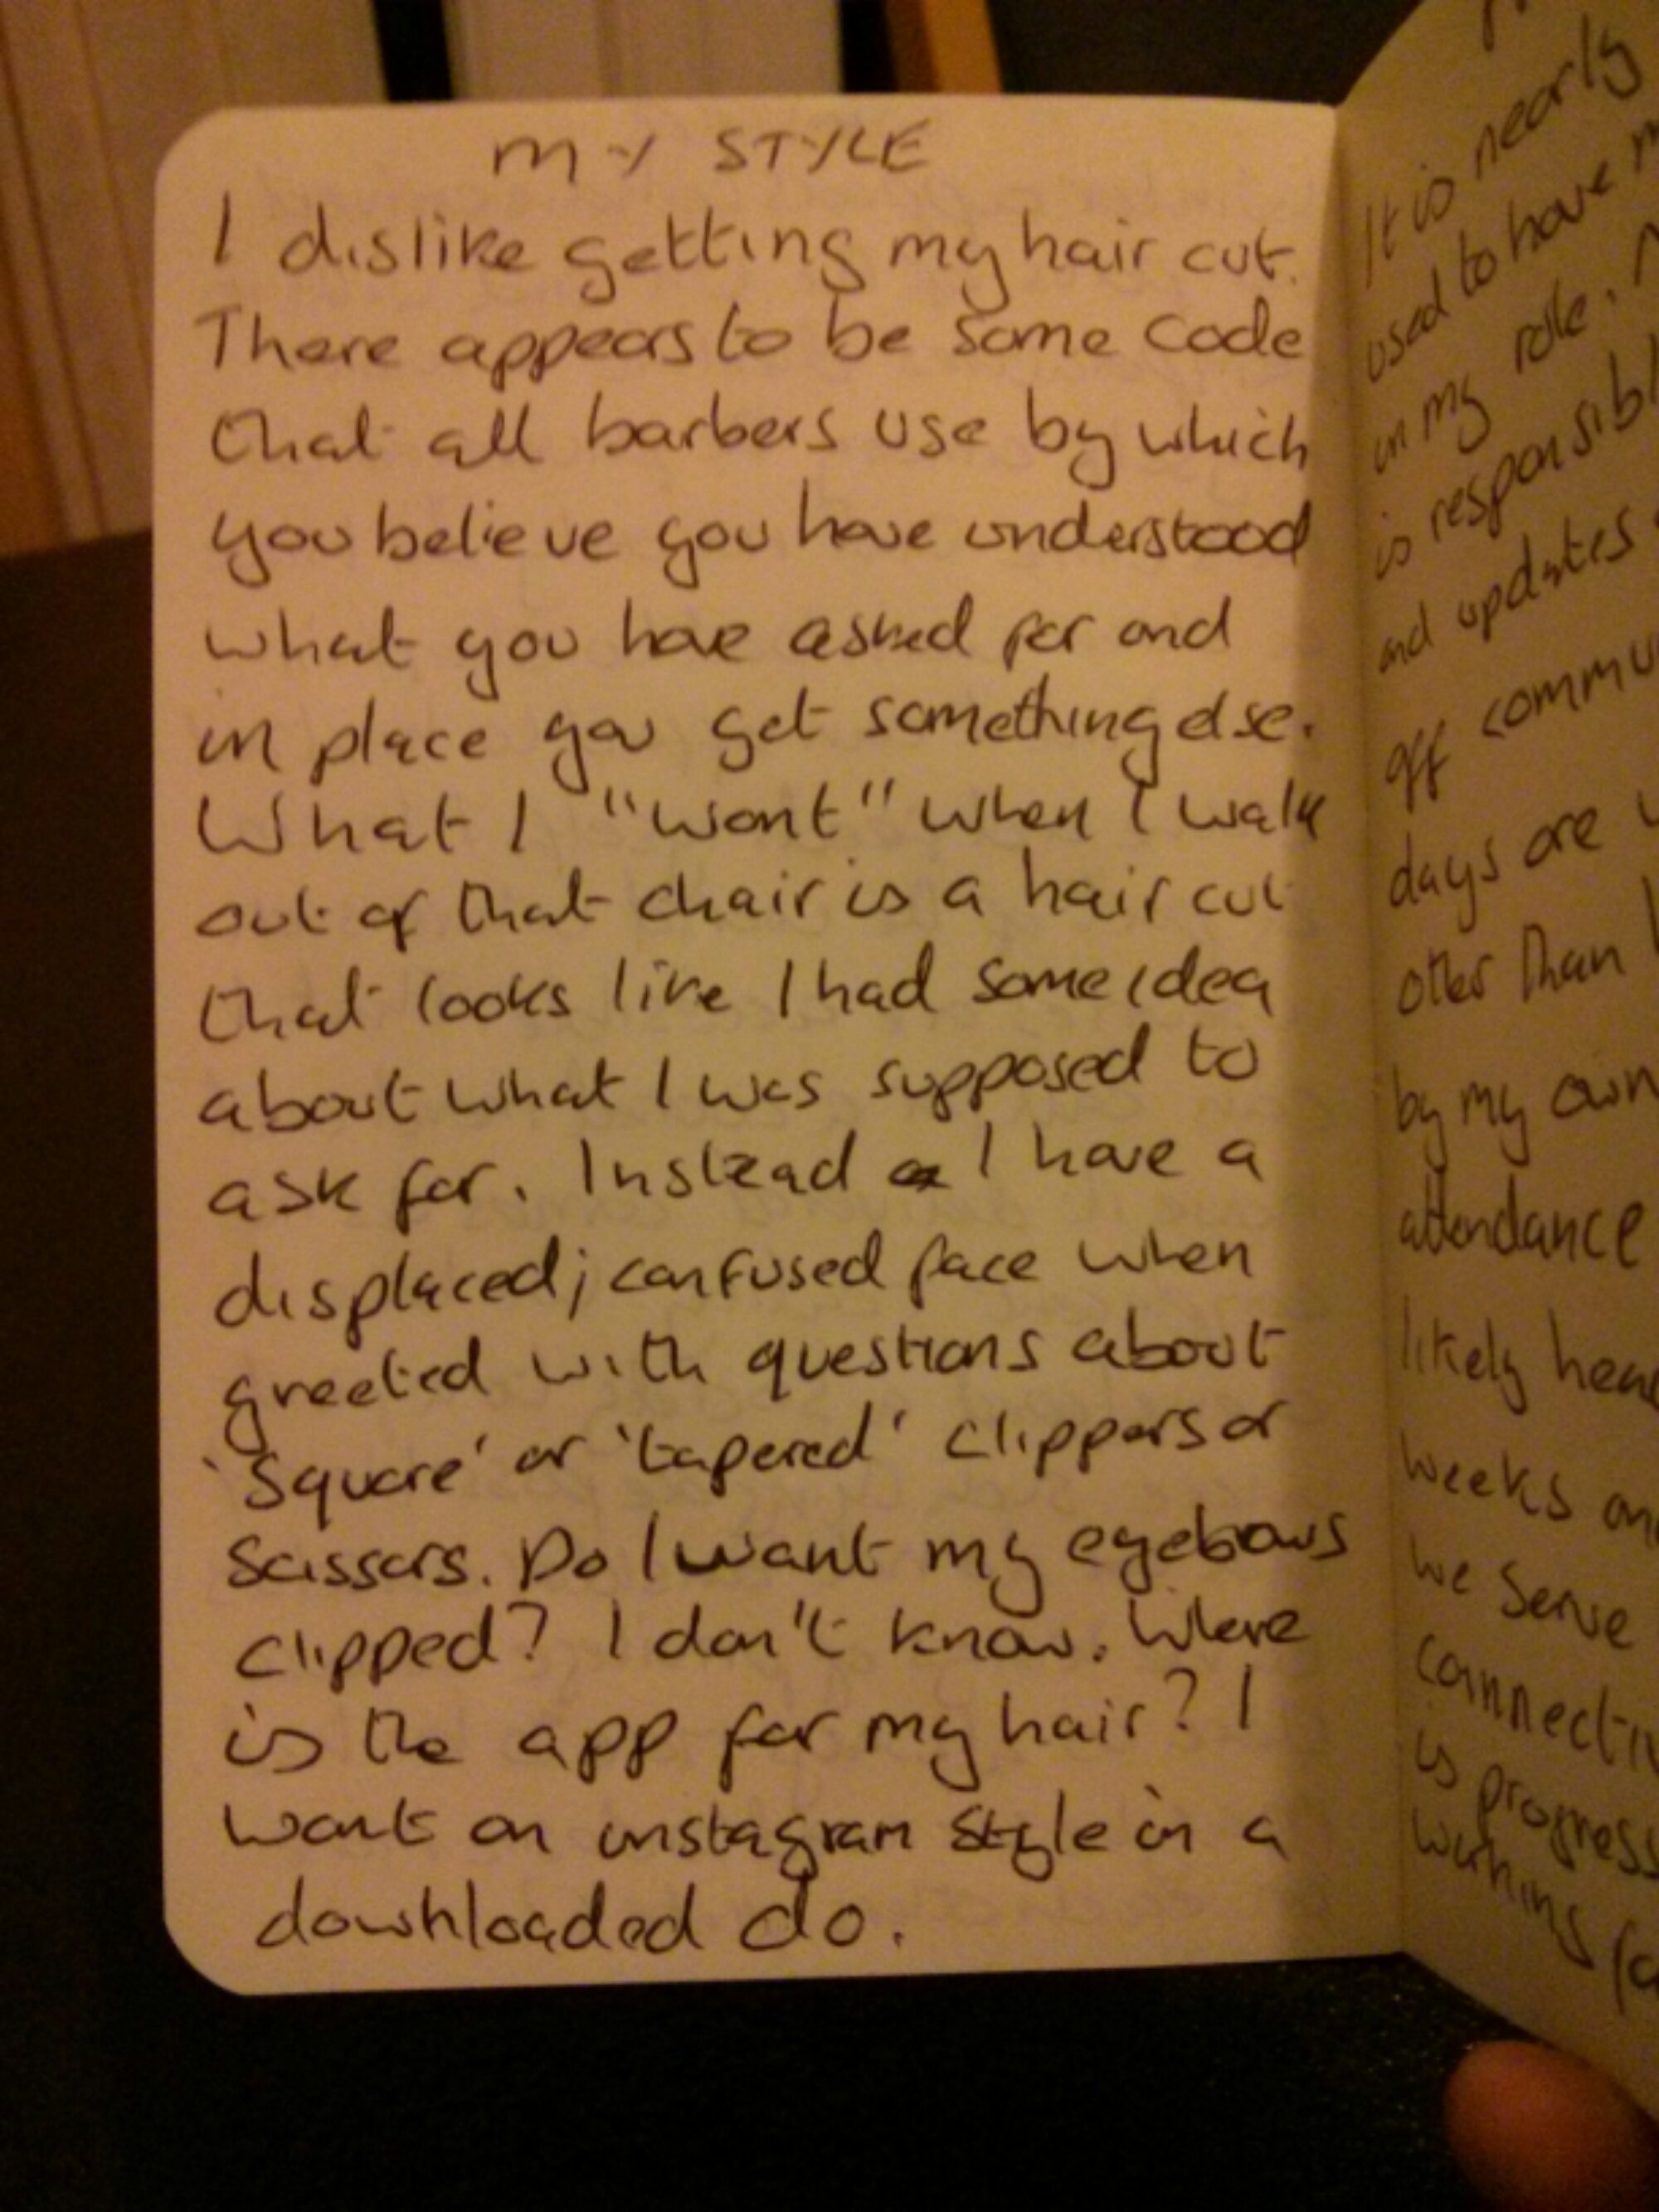 MY STYLE
I dislike getting my hair cut.
There appears to be some code
that all barbers use by which
you believe you have understood
what you have asked for and
in place you get something else.
What I "want" when I walk
out of that chair is a hair cut
that looks like I had some idea
about what I was supposed to
ask for. Instead I have a
displaced; confused face when
greeted with questions about
'Square' or 'tapered' clippers or
Scissors. Do I want my eyebrows
clipped? I don't know. Where
is the app for my hair? I
want an instagram style in a
downloaded do.
It is nearly
used to have
in my role.
is
and updates
off
days are
other than
by my own
attendance
likely
weeks
we serve
is progress
working